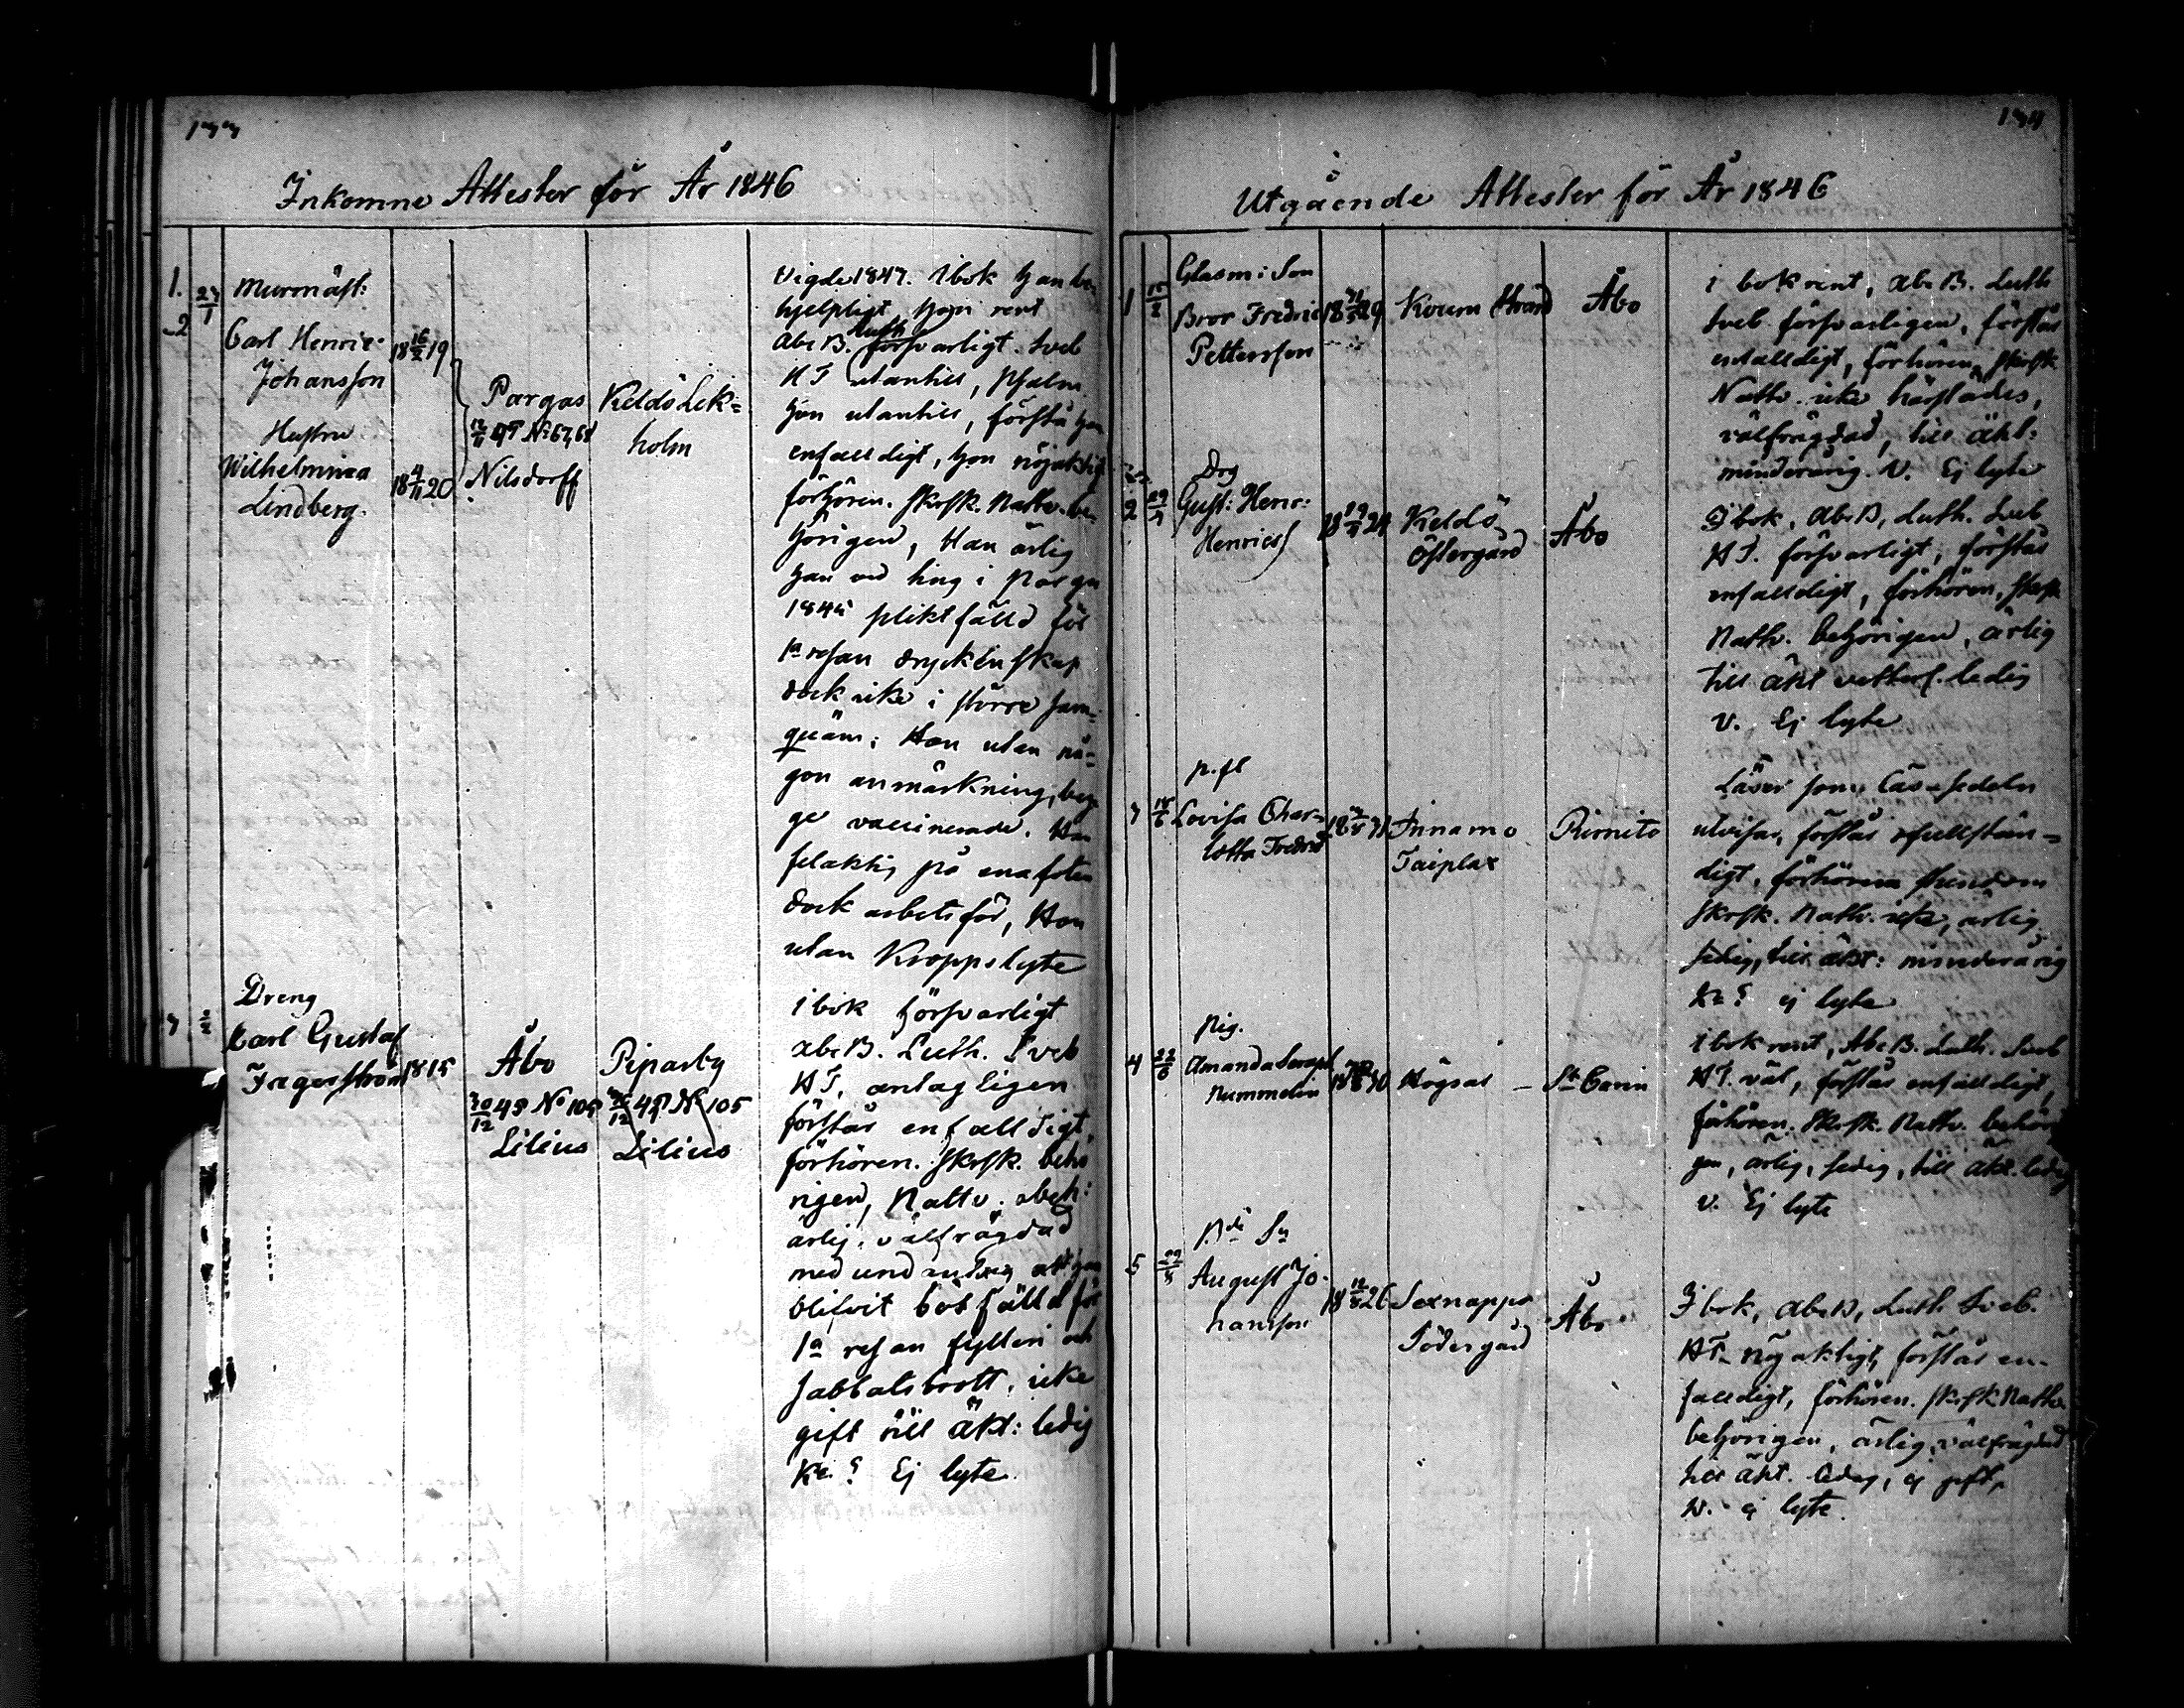 133
Inkomne Attester för År 1846
1.
2
27/1
Murmäst:
Carl Henric
Johansson
Hustru
Wilhelmina
Lindberg.
18 16/2 19
18 4/11 20
Pargas
12/11 45 No 67,68
Nilsdorff
Keldö Lek=
holm
Vigde 1847. I bok han be-
hjelpligt hon rent
Abc B. Luth försvarligt. Sveb
HT utantill, Psalm
hon utantill, förstå han
enfalldigt, hon nöjaktig
förhören. Skrsk. Nattv. be-
hörigen, Han ärlig
han vid ting i Parga
1845 pliktfälld för
1a resan dryckenskap
dock icke i större sam-
quäm; Hon utan nå-
gon anmärkning, beg-
ge vaccinerade. Han
felaktig på ena foten
dock arbetsför, Hon
utan Kroppslyte
3
Dreng
Carl Gustaf
Fagerström
1815
Åbo
30/12 45 No 105
Lilius
Piparby
30/12 45 No 105
Lilius
I bok försvarligt
abc B. Luth. Sveb
HT. antagligen
förstår enfalldigt
förhören. Skrsk. behö
rigen, Nattv. obek:
ärlig, välfrägdad
med undantag att han
blifvit botfälld för
1a resan fylleri och
sabbatsbrott, icke
gift till äkt: ledig
Kc. ? Ej lyte.
134
Utgående Attester för År 1846
1
15/2
Glasm: Son
Bror Fredric
Pettersson
Åbo
i bok rent, Abc B. Luth
Sveb försvarligen, förstår
enfalldigt, förhören, Skrsk
Nattv. icke härstädes,
välfrägdad, till äkt:
minderårig. V. Ej lyte
2
29/3
Drg
Gust: Henr:
Henrics
Keldö
Östergård
Åbo
I bok, Abc B, Luth. Sveb
HT. försvarligt, förstår
enfalldigt, förhören, Skrsk
Nattv. behörigen, ärlig
till äkt vetterl. ledig
V. Ej lyte
3
p. fl
Lovisa Char-
lotta Fredric
Innamo
Taiplax
Rimito
Läser som läs-sedeln
utvisar, förstår ofullstän=
digt, förhören stundom
Skrsk. Nattv. icke, ärlig
sedig, till äkt: minderårig
Kc ? ej lyte
4
22/6
Pig.
Amanda Seraph
Nummelin
Högsar
St Carin
I bok rent, Abc B. Luth. Sveb
HT. väl, förstår enfalldigt,
förhören. Skrsk. Nattv. behöri
gen, ärlig, sedig, till äkt. ledig
V. Ej lyte
5
Bde Sn
August Jo-
hansson
18 12/8 26
Sexnappa
Södergård
Åbo
I bok, Abc B, Luth Sveb.
HT. nöjaktigt, förstår en-
falldigt, förhören. Skrsk Nattv
behörigen, ärlig, välfrägdad
till äkt. ledig, ej gift,
V. ej lyte.